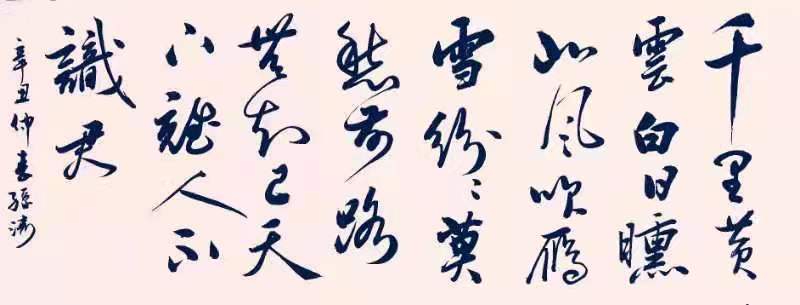 千里黄
雲白日曛
北風吹雁
雪紛〻莫
愁前路
無知己天
下誰人不
識君
辛丑仲春